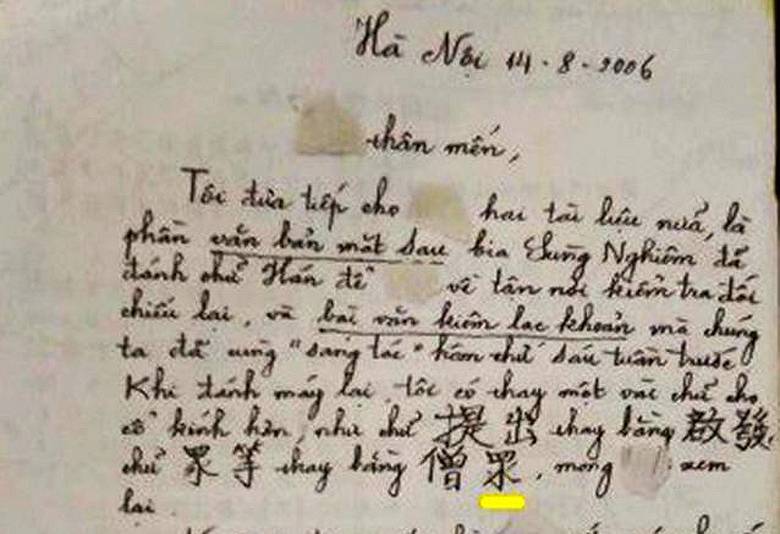 Hà Nội 14-8-2006
thân mến,
Tôi đưa tiếp cho hai tài liệu nữa, là
phần văn bản mặt sau bia Sùng Nghiêm đã
đánh chữ Hán để về tận nơi kiểm tra đối
chiếu lại, và bài văn kiêm lạc khoản mà chúng
ta đã cùng "sáng tác" hôm chủ sáu tuần trước
Khi đánh máy lại, tôi có thay một vài chữ cho
cổ kính hơn, như chữ 提出 thay bằng 啟發
chữ 眾等 thay bằng 僧眾, mong xem
lại.